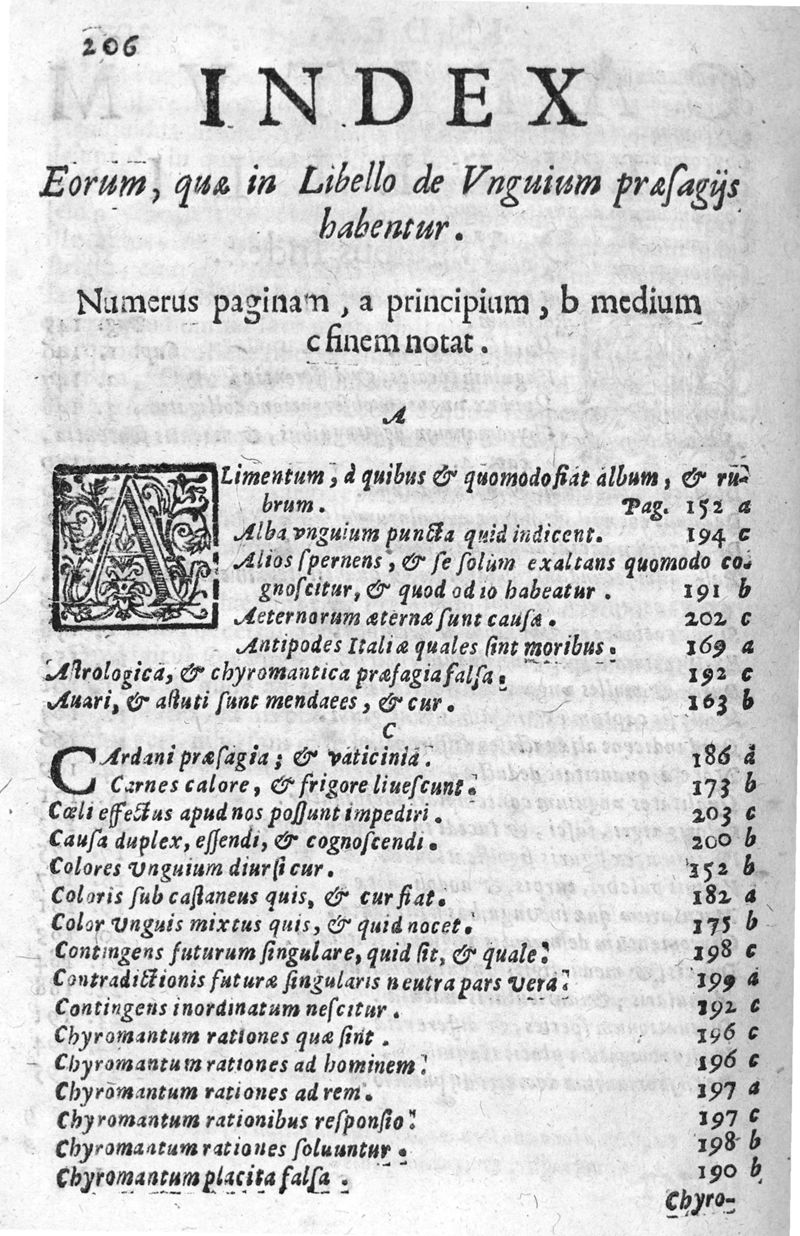 206
INDEX
Eorum, quæ in Libello de Vnguium præſagijs
habentur.
Numerus paginam, a principium, b medium
c finem notat.
A
ALimentum, à quibus & quomodo fiat album, & ru-
brum. Pag. 152 a
Alba vnguium puncta quid indicent. 194 c
Alios ſpernens, & ſe ſolum exaltans quomodo co-
gnoſcitur, & quod odio habeatur. 191 b
Aeternorum æternæ ſunt cauſæ. 202 c
Antipodes Italiæ quales ſint moribus. 169 a
Aſtrologica, & chyromantica præſagia falſa. 192 c
Auari, & aſtuti ſunt mendaees, & cur. 163 b
C
CArdani præſagia; & vaticinia. 186 a
Carnes calore, & frigore liueſcunt. 173 b
Cœli effectus apud nos poſſunt impediri. 203 c
Cauſa duplex, eſſendi, & cognoſcendi. 200 b
Colores Vnguium diurſi cur. 152 b
Coloris ſub caſtaneus quis, & cur fiat. 182 a
Color Vnguis mixtus quis, & quid nocet. 175 b
Contingens futurum ſingulare, quid ſit, & quale. 198 c
Contradictionis futuræ ſingularis neutra pars vera. 199 a
Contingens inordinatum neſcitur. 192 c
Chyromantum rationes quæ ſint. 196 c
Chyromantum rationes ad hominem. 196 c
Chyromantum rationes ad rem. 197 a
Chyromantum rationibus reſponſio. 197 c
Chyromantum rationes ſoluuntur. 198 b
Chyromantum placita falſa. 190 b
Chyro-